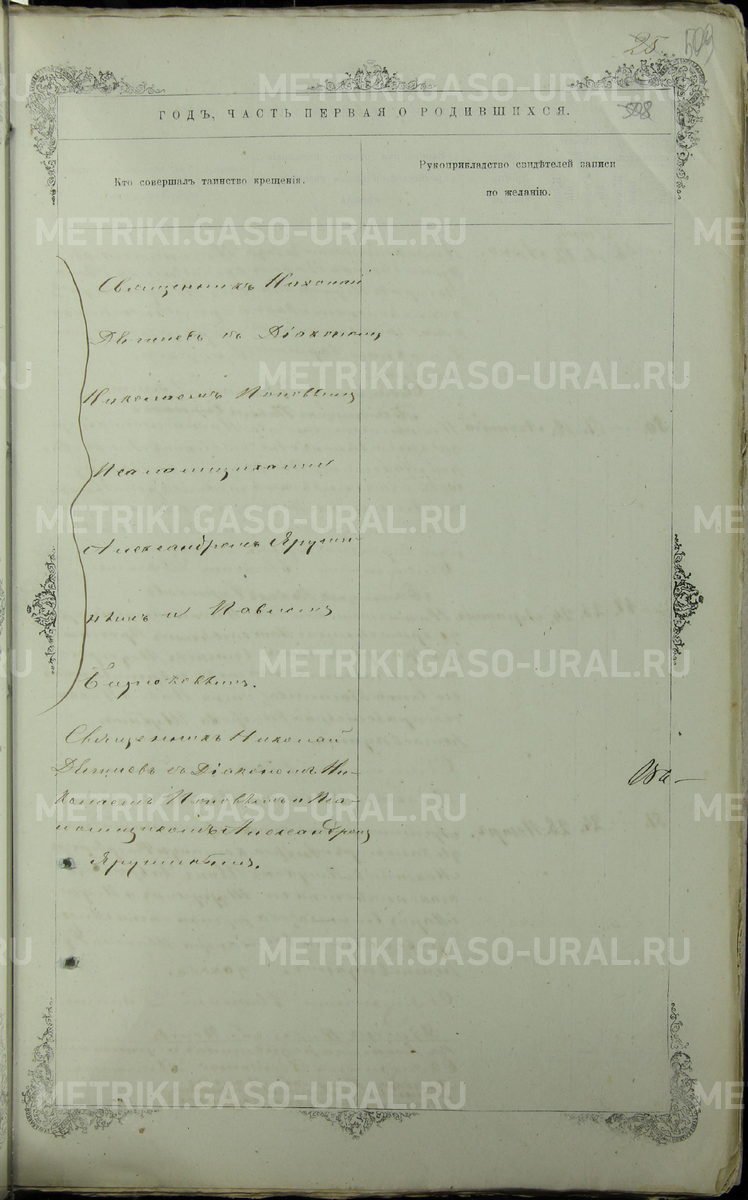 25.
509
508
ГОДЪ, ЧАСТЬ ПЕРВАЯ О РОДИВШИХСЯ.
Кто совершалъ таинство крещенія.
Рукоприкладство свидѣтелей записи
по желанію.
Священникъ Николай
съ Діакономъ
Николаемъ Поповымъ
Псаломщиками
Александромъ
и Павломъ
Бирюковымъ.
Священникъ Николай
съ Діакономъ Ни-
колаемъ Поповымъ и Пса-
ломщикомъ Александромъ
METRIKI.GASO-URAL.RU